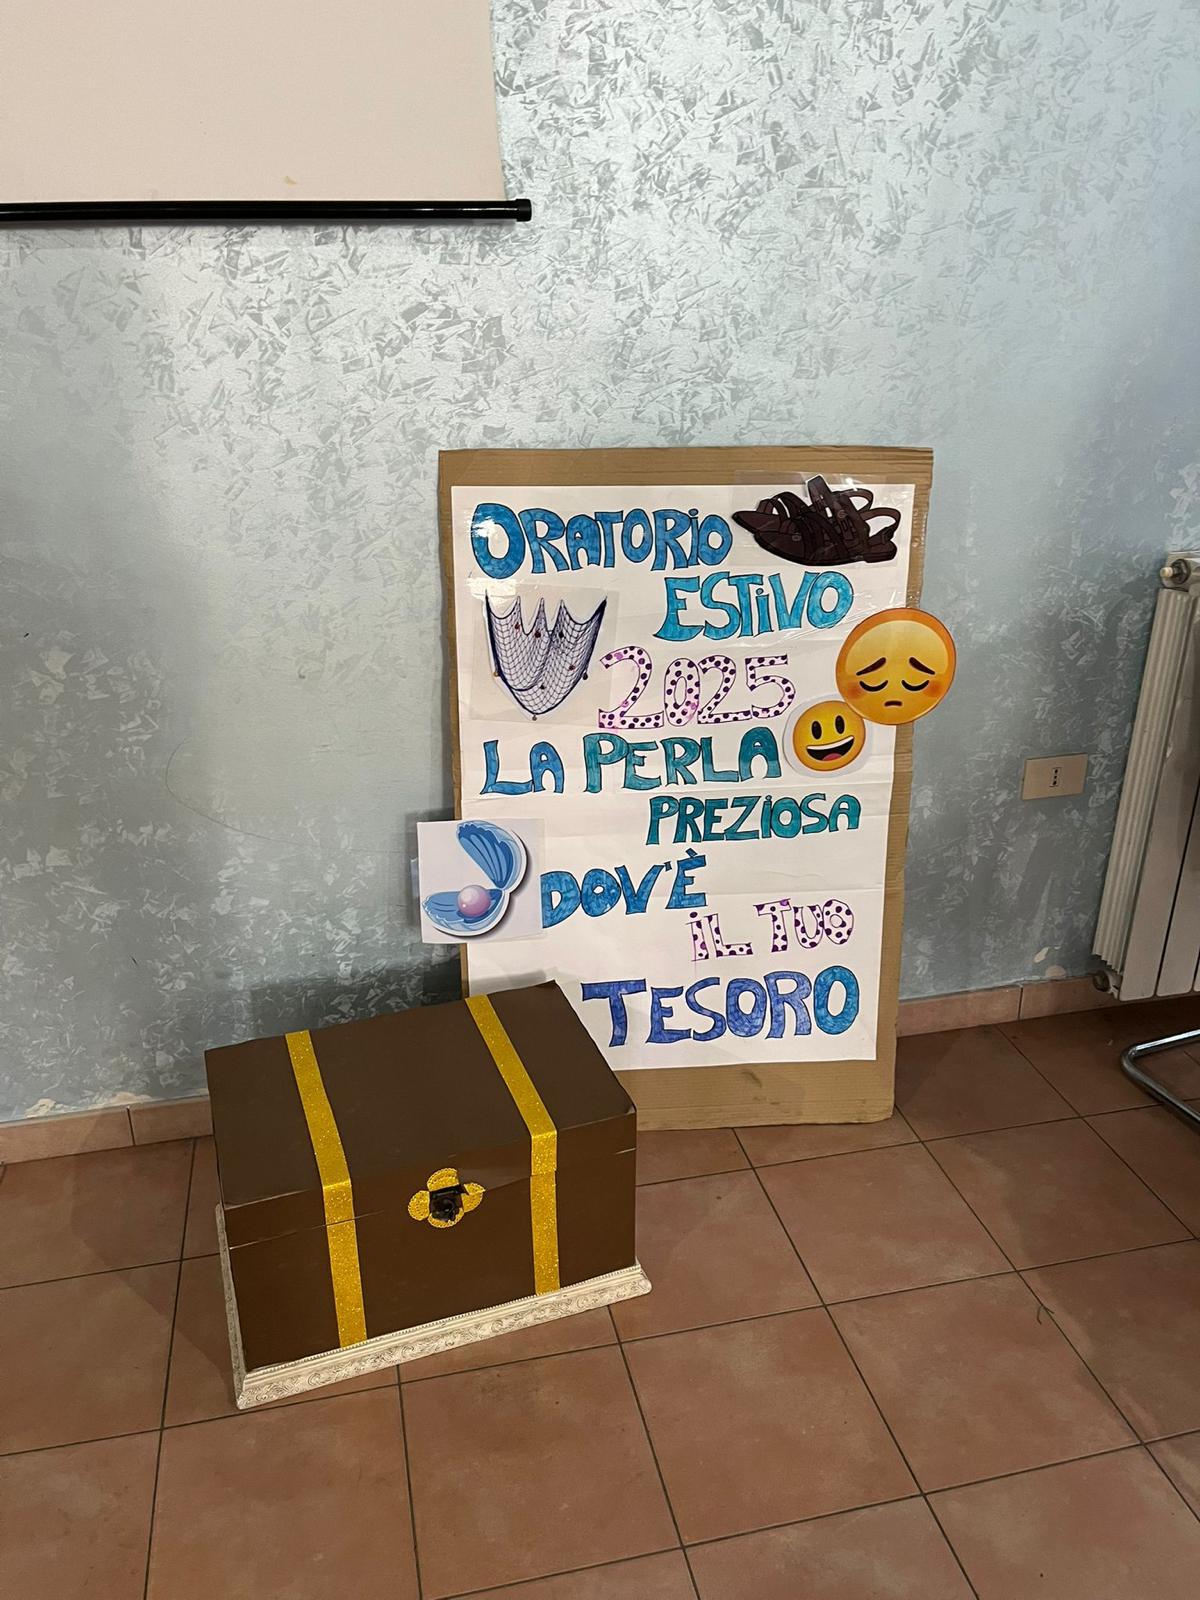 ORATORiO
ESTiVO
2025
LA PERLA
PREZiOSA
DOV'È
iL TUO
TESORO